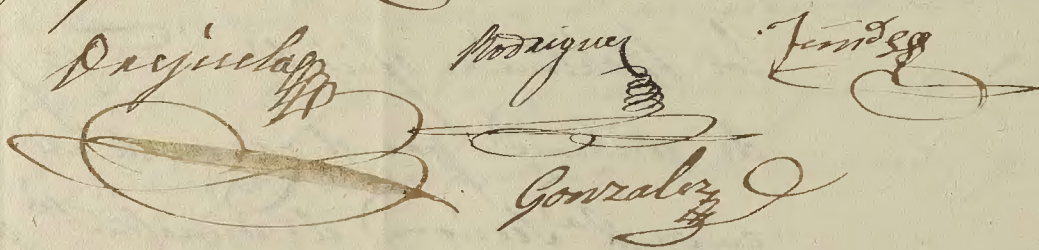 Orejuela
Rodriguez
Gonzalez